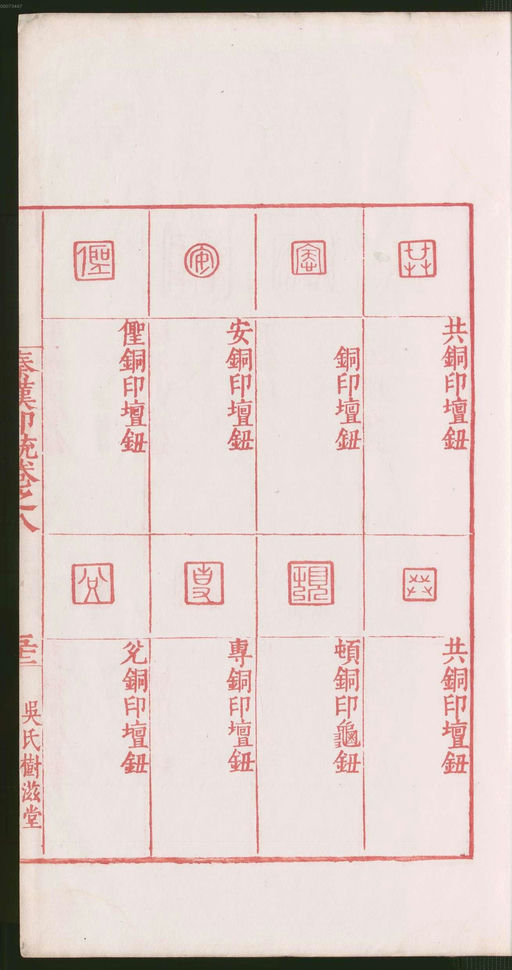 共銅印壇鈕
銅印壇鈕
安銅印壇鈕
㷠銅印壇鈕
共銅印壇鈕
頓銅印龜鈕
專銅印壇鈕
兊銅印壇鈕
秦漢印統卷之八
吳氏樹滋堂
00073447